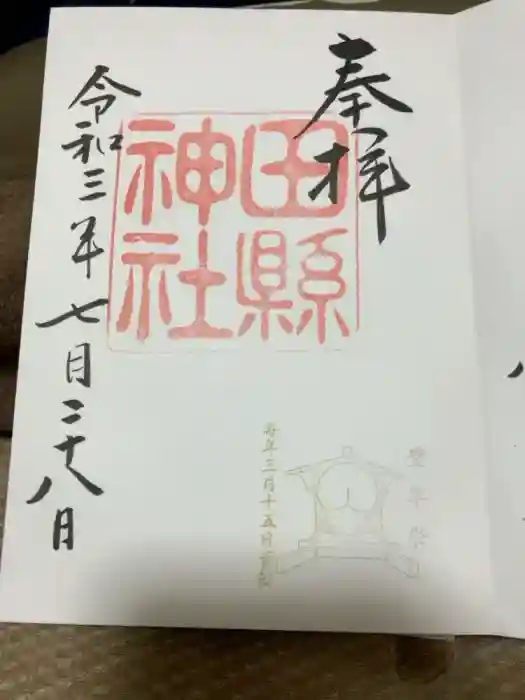 奉拝
田縣
神社
令和三年七月二十八日
豊年祭
毎年三月十五日